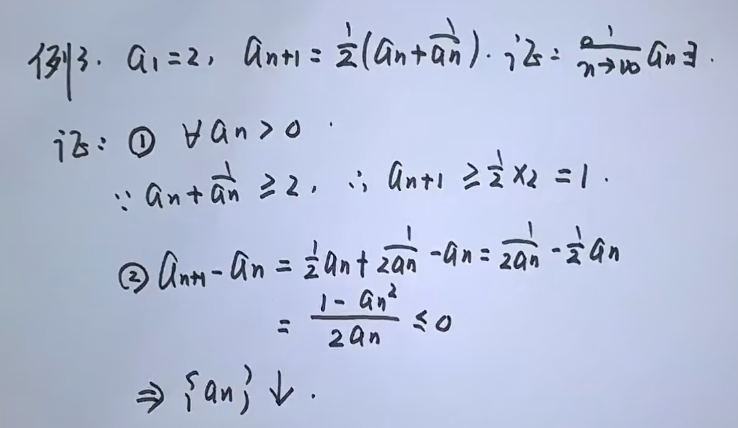 例3. a₁=2, aₙ₊₁=½(aₙ+1/aₙ). 证: lim n→∞ aₙ∃.
证: ① ∀aₙ>0
∵ aₙ+1/aₙ ≥2, ∴ aₙ₊₁ ≥½×2 =1.
② aₙ₊₁-aₙ = ½aₙ+1/2aₙ -aₙ = 1/2aₙ -½aₙ
= (1-aₙ²)/2aₙ ≤0
⇒ {aₙ}↓.